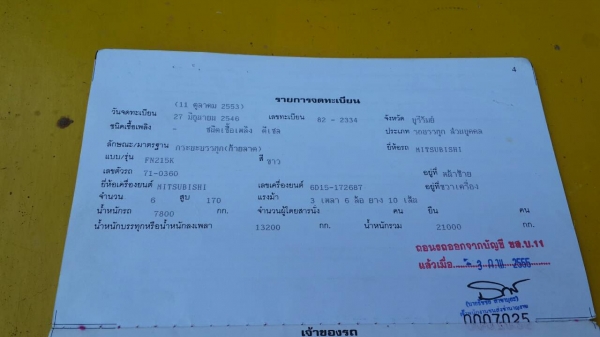 4
รายการจดทะเบียน
(11 ตุลาคม 2553)
วันจดทะเบียน 27 มิถุนายน 2546 เลขทะเบียน 82 - 2334 จังหวัด บุรีรัมย์
ชนิดเชื้อเพลิง - ชนิดเชื้อเพลิง ดีเซล ประเภท รถบรรทุก ส่วนบุคคล
ลักษณะ/มาตรฐาน กระบะบรรทุก(ท้ายลาด) ยี่ห้อรถ MITSUBISHI
แบบ/รุ่น FN215K สี ขาว
เลขตัวรถ 71-0360 อยู่ที่
ยี่ห้อเครื่องยนต์ MITSUBISHI เลขเครื่องยนต์ 6D15-172687 อยู่ที่ ขวาเครื่อง
จำนวน 6 สูบ 170 แรงม้า 3 เพลา 6 ล้อ ยาง 10 เส้น
น้ำหนักรถ 7800 กก. จำนวนผู้โดยสารนั่ง คน ยืน คน
น้ำหนักบรรทุกหรือน้ำหนักลงเพลา 13200 กก. น้ำหนักรวม 21000 กก.
ถอนรถออกจากบัญชี ขส.บ.11
แล้วเมื่อ 3 ก.พ. 2555
0007025
เจ้าของรถ